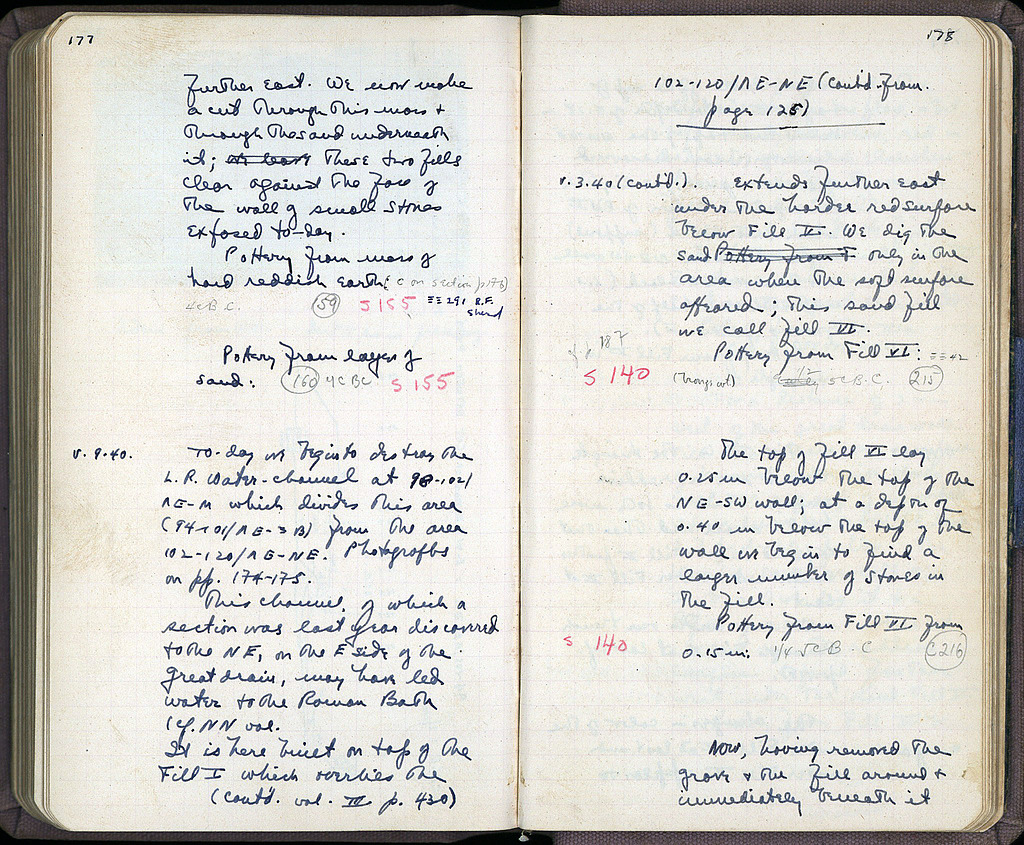 177
further east. We now make
a cut through this mass +
through the sand underneath
it; these two fills
clear against the face of
the wall of small stones
exposed to-day.
Pottery from mass of
hard reddish earth (C on section p. 176)
4c B.C. 159 S 155 ΞΞ 291 R.F. sherd
Pottery from layer of
sand: 160 4C BC S 155
V. 9. 40. To-day we begin to destroy the
L.R. water-channel at 98-102/
ΛΕ-Μ which divides this area
(94-101/ΛΕ-ΞΒ) from the area
102-120/ΛΕ-ΝΕ. Photographs
on pp. 174-175.
This channel, of which a
section was last year discovered
to the NE, on the E side of the
Great drain, may have led
water to the Roman Bath
(cf. NN vol.
It is here built on top of the
Fill I which overlies the
(cont'd. vol. III p. 430)
178
102-120/ΛΕ-ΝΕ (Cont'd. from
page 125)
V. 3. 40 (cont'd.). Extends further east
under the harder red surface
below Fill III. We dig the
sand Pottery from F only in the
area where the soft surface
appeared; this sand fill
we call Fill VI.
Pottery from Fill VI: ΞΞ 42
S 140 5C B.C. 215
The top of Fill VI lay
0.25 m below the top of the
NE-SW wall; at a depth of
0.40 m below the top of the
wall we begin to find a
larger number of stones in
the fill.
Pottery from Fill VI from
S 140 0.15 m: 1/4 5C B.C C216
Now, having removed the
grave + the fill around +
immediately beneath it